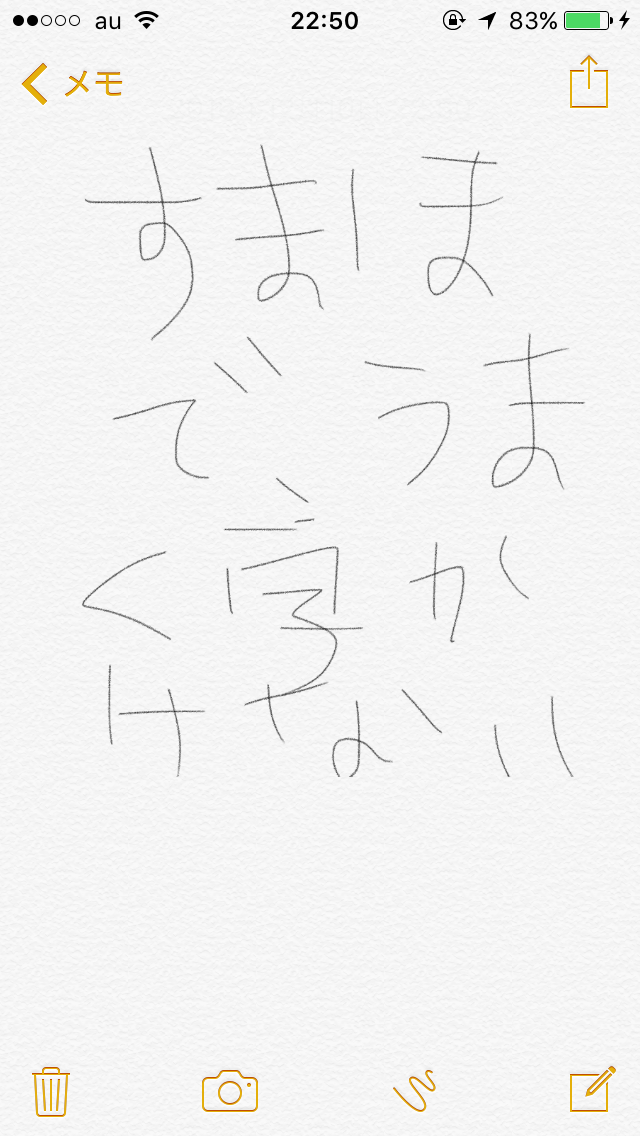 au 22:50 83%
メモ
すまほ
でうま
く字か
けない